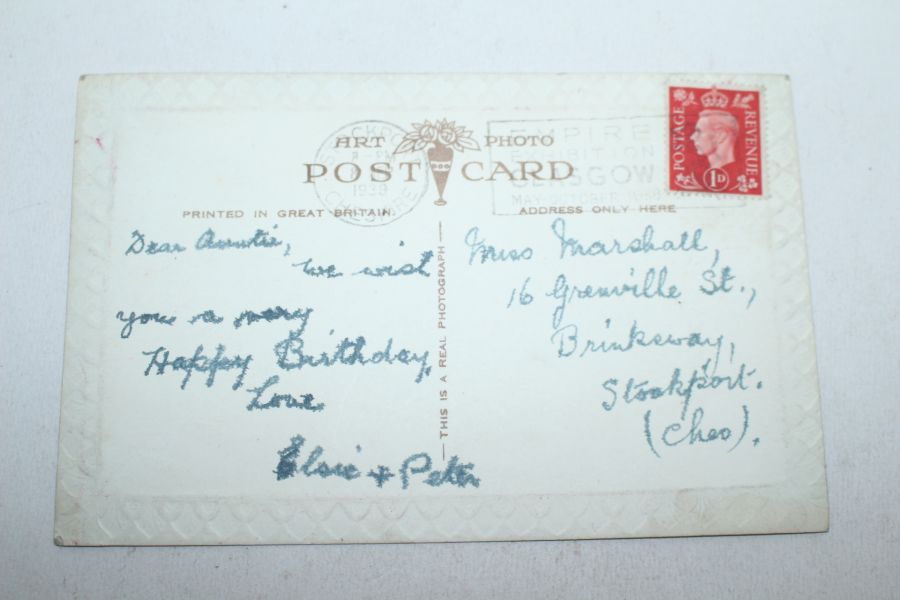 ART PHOTO
POST CARD
PRINTED IN GREAT BRITAIN
ADDRESS ONLY HERE
STOCKPORT
8 - PM
1938
CHESHIRE
EMPIRE
EXHIBITION
GLASGOW
MAY-OCTOBER 1938
POSTAGE
REVENUE
1D
Dear Auntie,
we wish
you a very
Happy Birthday,
Love
Elsie + Peter
THIS IS A REAL PHOTOGRAPH
Miss Marshall,
16 Grenville St.,
Brinksway,
Stockport.
(Ches).